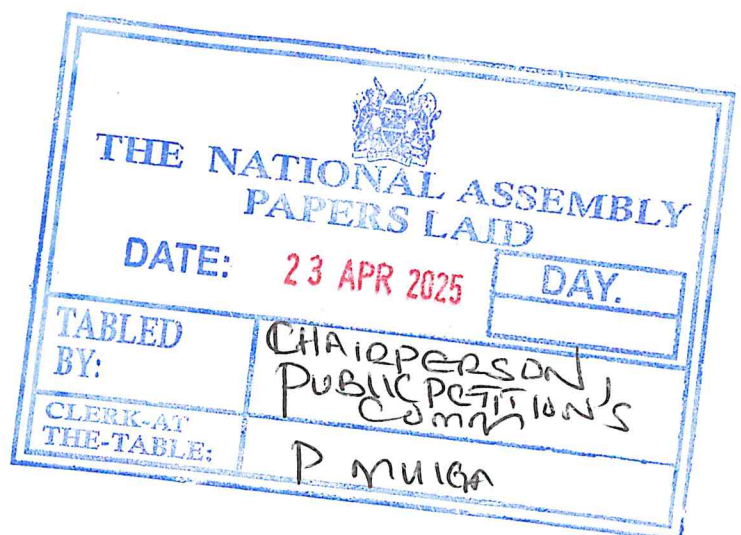 THE NATIONAL ASSEMBLY
PAPERS LAID
DATE: 23 APR 2025 DAY.
TABLED BY: CHAIRPERSON, PUBLIC PETITION'S COMM
CLERK-AT THE-TABLE: P MUIGA